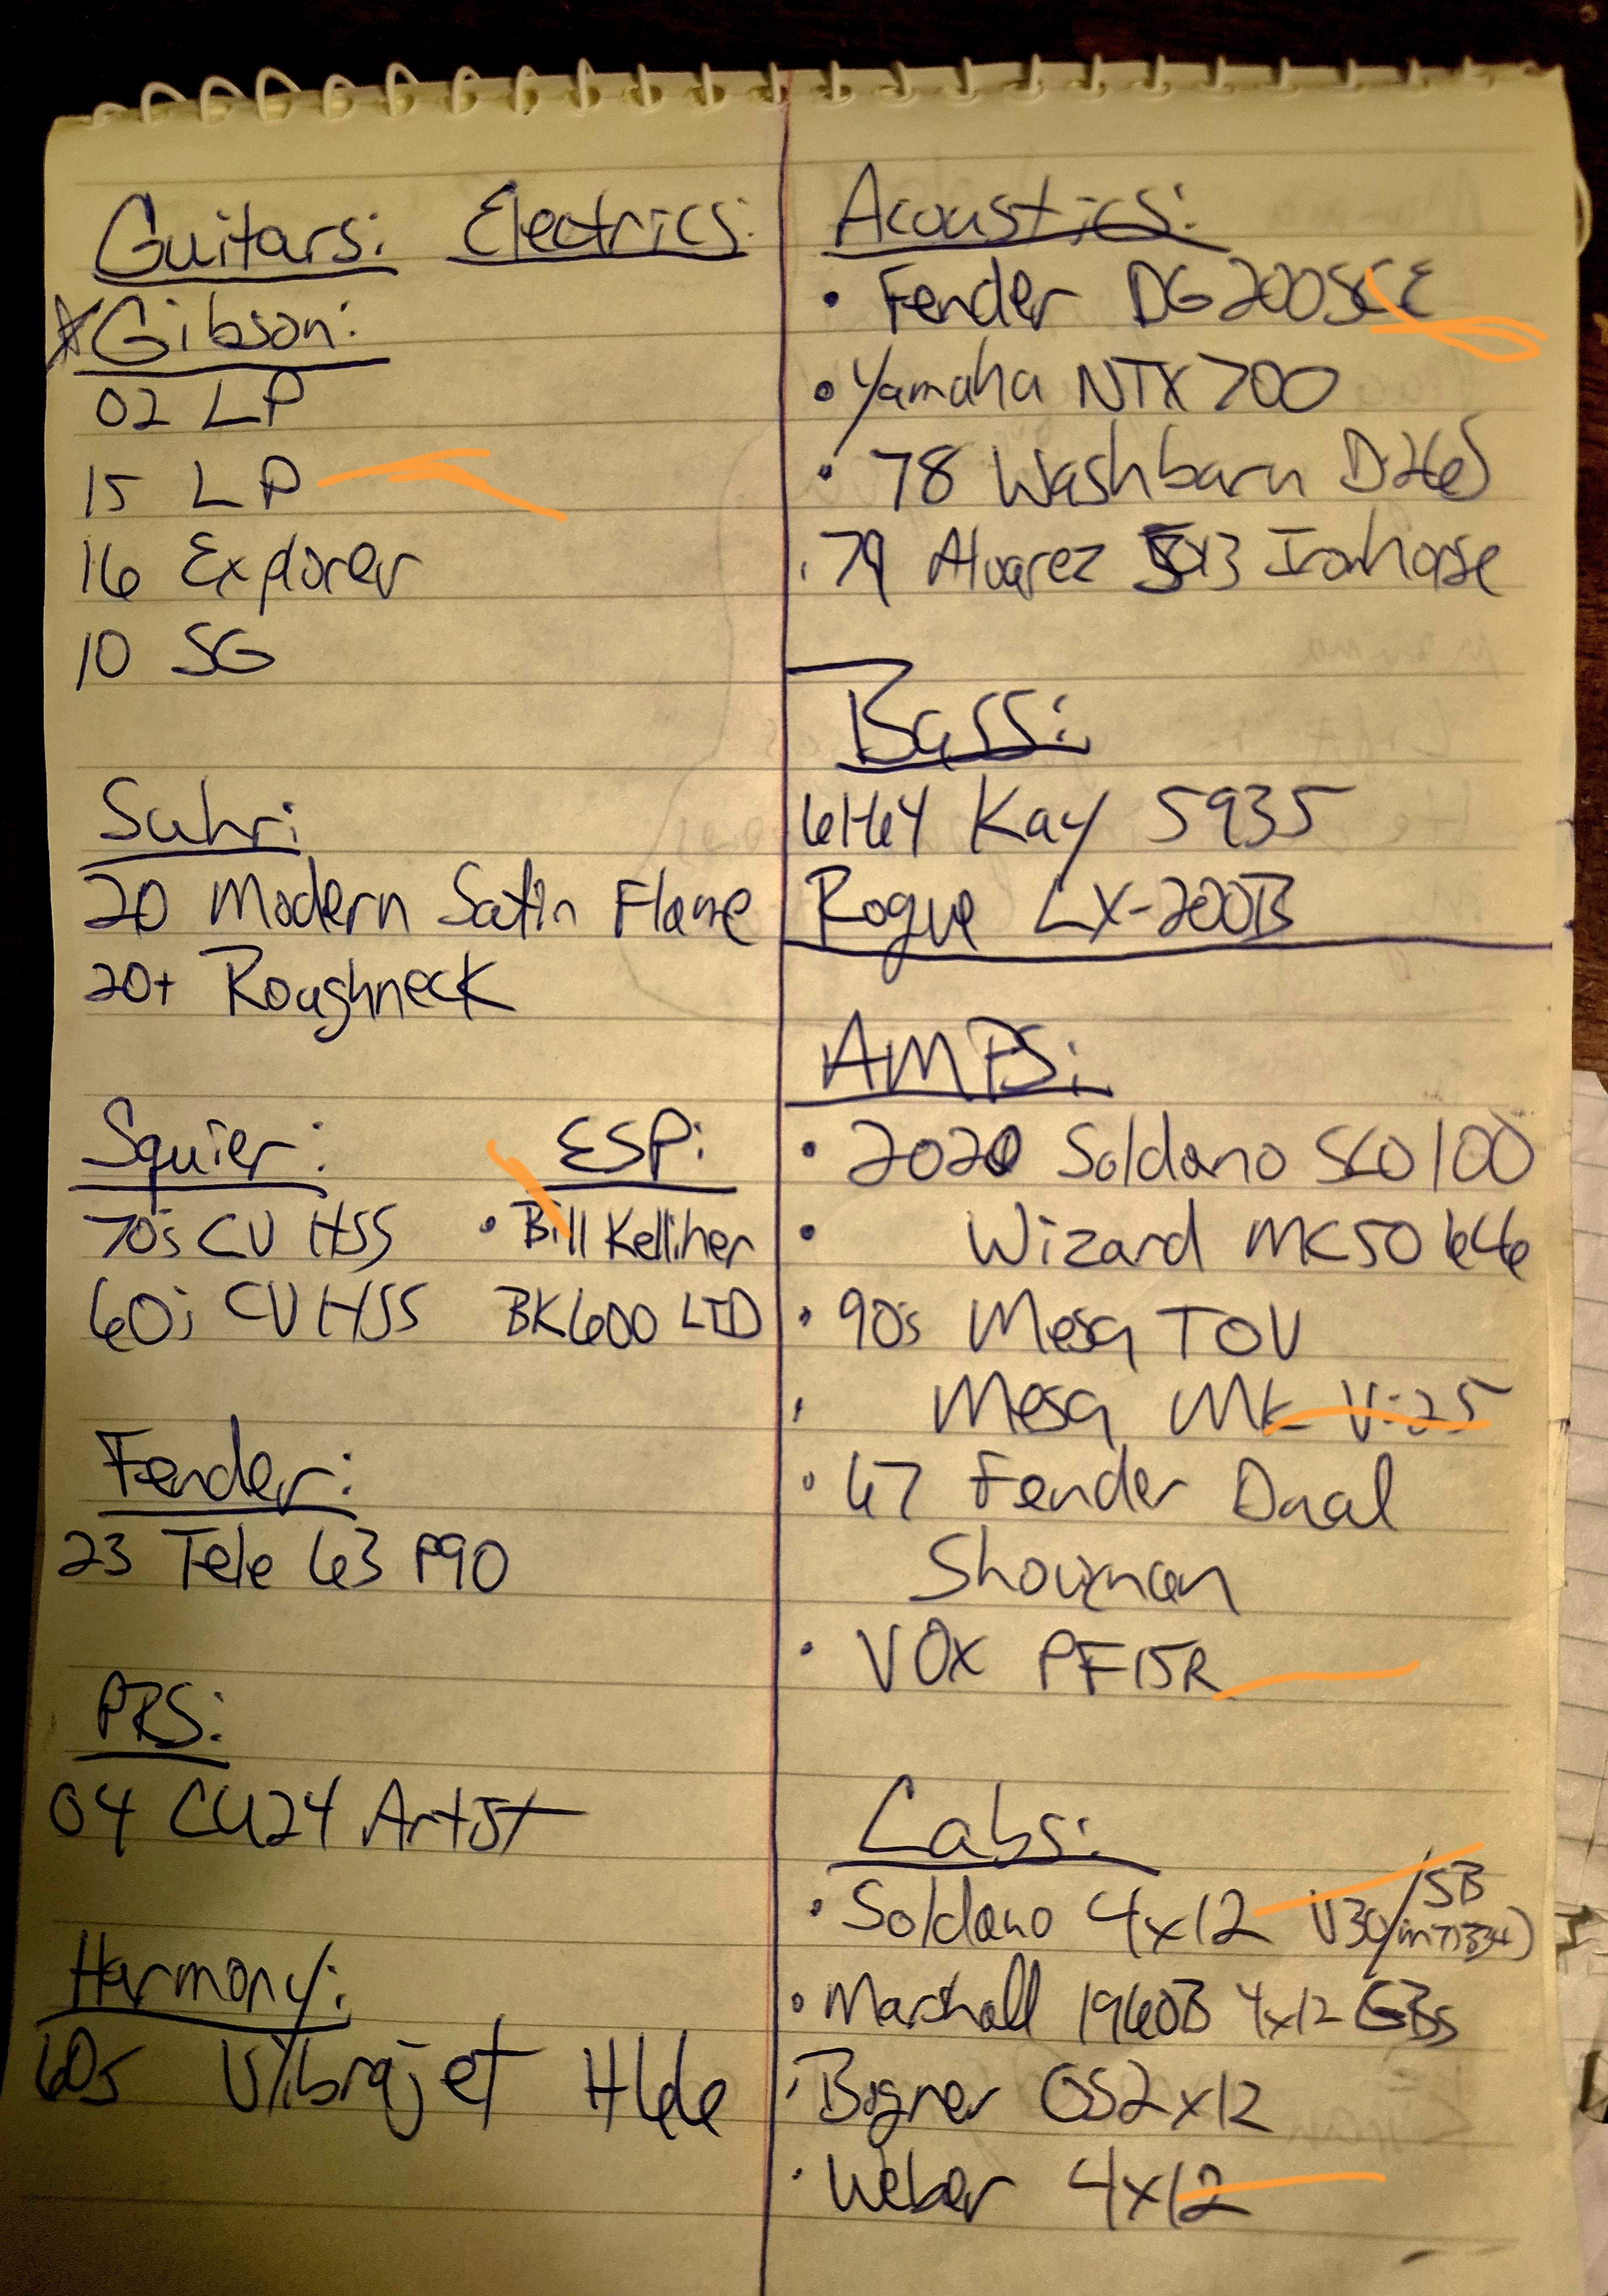 Guitars: Electrics:
*Gibson:
02 LP
15 LP
16 Explorer
10 SG
Suhr:
20 Modern Satin Flame
20+ Roughneck
Squier:
70's CV HSS
60s CV HSS
ESP:
• Bill Kelliher
BK600 LTD
Fender:
23 Tele 63 P90
PRS:
04 CU24 Artist
Harmony:
60s Vibrajet H66
Acoustics:
• Fender DG200SCE
• Yamaha NTX700
• 78 Washburn D26S
• 79 Alvarez 5013 Ironhorse
Bass:
6164 Kay 5935
Rogue LX-200B
AMPS:
• 2020 Soldano SLO100
• Wizard MC50 6L6
• 90's Mesa TOV
• Mesa Mk V:25
• 67 Fender Dual
Showman
• VOX PF15R
Cabs:
• Soldano 4x12 V30/SB
• Marshall 1960B 4x12 GBs
• Bogner OS2x12
• Weber 4x12